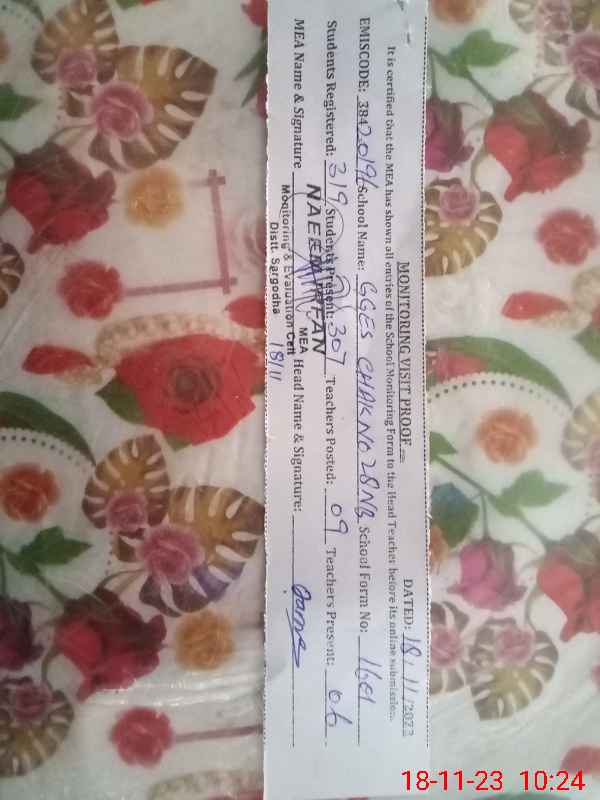 MONITORING VISIT PROOF
DATED: 18/11/2023
It is certified that the MEA has shown all entries of the School Monitoring Form to the Head Teacher before its online submission.
EMISCODE: 38420196 School Name: GGES CHAK NO 28 NB School Form No:
Students Registered: 319 Students Present: 307 Teachers Posted: 09 Teachers Present: 06
MEA Name & Signature Head Name & Signature:
MEA
Monitoring & Evaluation Cell
Distt. Sargodha
18/11
18-11-23 10:24